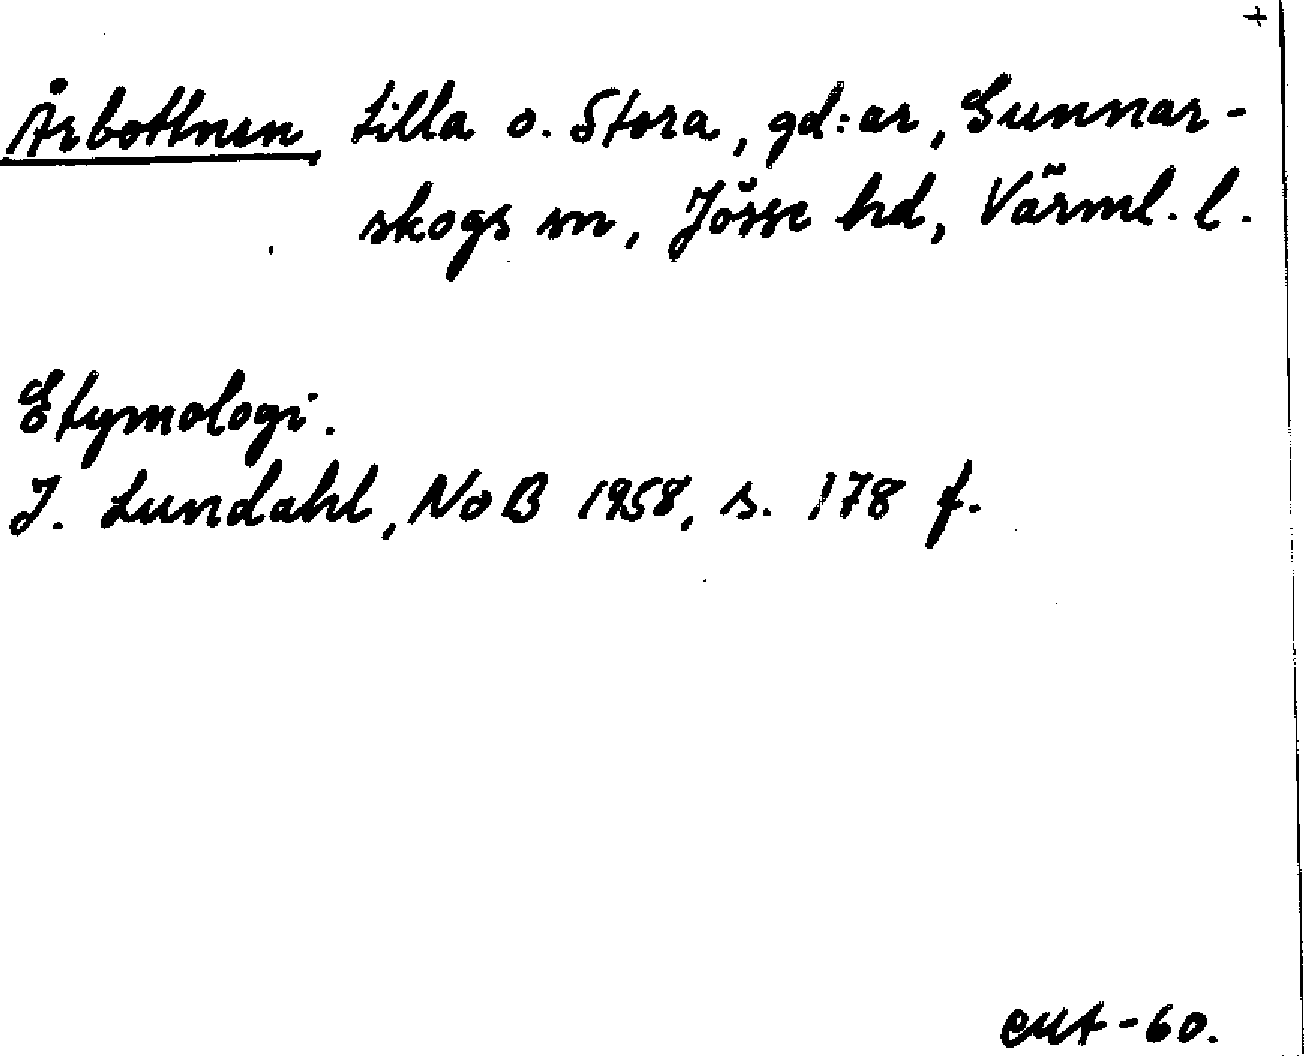 +
Årbottnen, Lilla o. Stora, gd:ar, Gunnar-
skogs sn, Jösse hd, Värml. l.
Etymologi.
I. Lundahl, NoB 1958, s. 178 f.
-60.